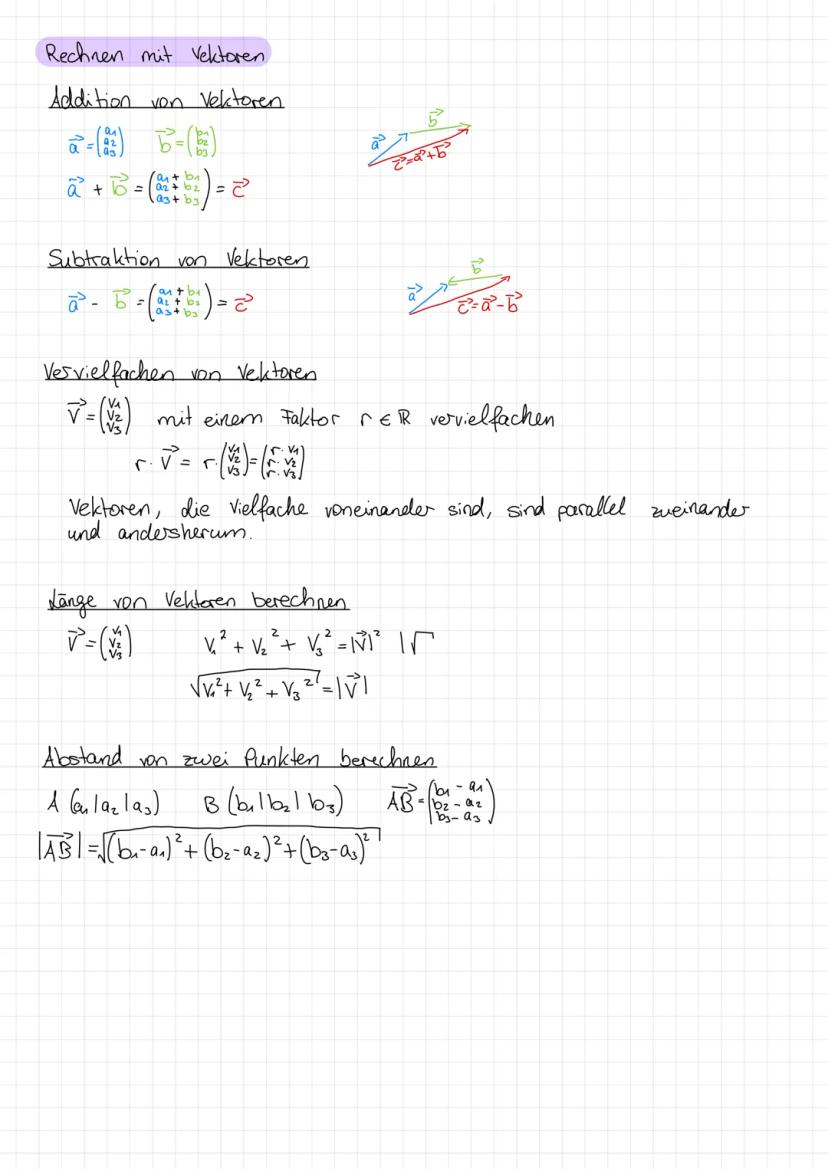 Rechnen mit Vektoren
Addition von Vektoren
a⃗ = (a1 a2 a3) b⃗ = (b1 b2 b3)
a⃗ b⃗ c⃗=a⃗+b⃗
a⃗ + b⃗ = (a1 + b1 a2 + b2 a3 + b3) = c⃗
Subtraktion von Vektoren
a⃗ - b⃗ = (a1 + b1 a2 + b2 a3 + b3) = c⃗
a⃗ b⃗ c⃗=a⃗-b⃗
Vervielfachen von Vektoren
V⃗ = (V1 V2 V3) mit einem Faktor r ∈ ℝ vervielfachen
r · V⃗ = r · (V1 V2 V3) = (r · V1 r · V2 r · V3)
Vektoren, die Vielfache voneinander sind, sind parallel zueinander
und andersherum.
Länge von Vektoren berechnen
V⃗ = (V1 V2 V3) V₁² + V₂² + V₃² = |V⃗|² |√
√(V₁² + V₂² + V₃²) = |V⃗|
Abstand von zwei Punkten berechnen
A (a1|a2|a3) B (b1|b2|b3) AB⃗ = (b1 - a1 b2 - a2 b3 - a3)
|AB⃗| = √((b1-a1)² + (b2-a2)² + (b3-a3)²)